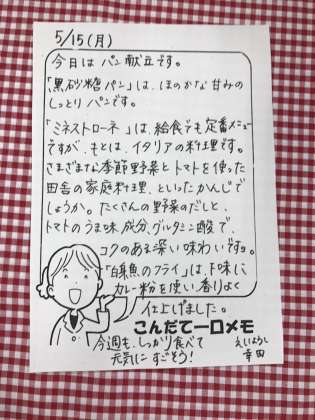 5/15(月)
今日は パン献立です。
「黒砂糖パン」は、ほのかな甘みの
しっとりパンです。
「ミネストローネ」は、給食でも定番メニュー
ですが、もとは、イタリアの料理です。
さまざまな季節野菜とトマトを使った
田舎の家庭料理、といったかんじで
しょうか。たくさんの野菜のだしと、
トマトのうま味成分、グルタミン酸で、
コクのある深い味わいです。
「白身魚のフライ」は、下味に
カレー粉を使い、香りよく
仕上げました。
こんだて一口メモ
今週も、しっかり食べて
元気に すごそう!
えいようし
幸田